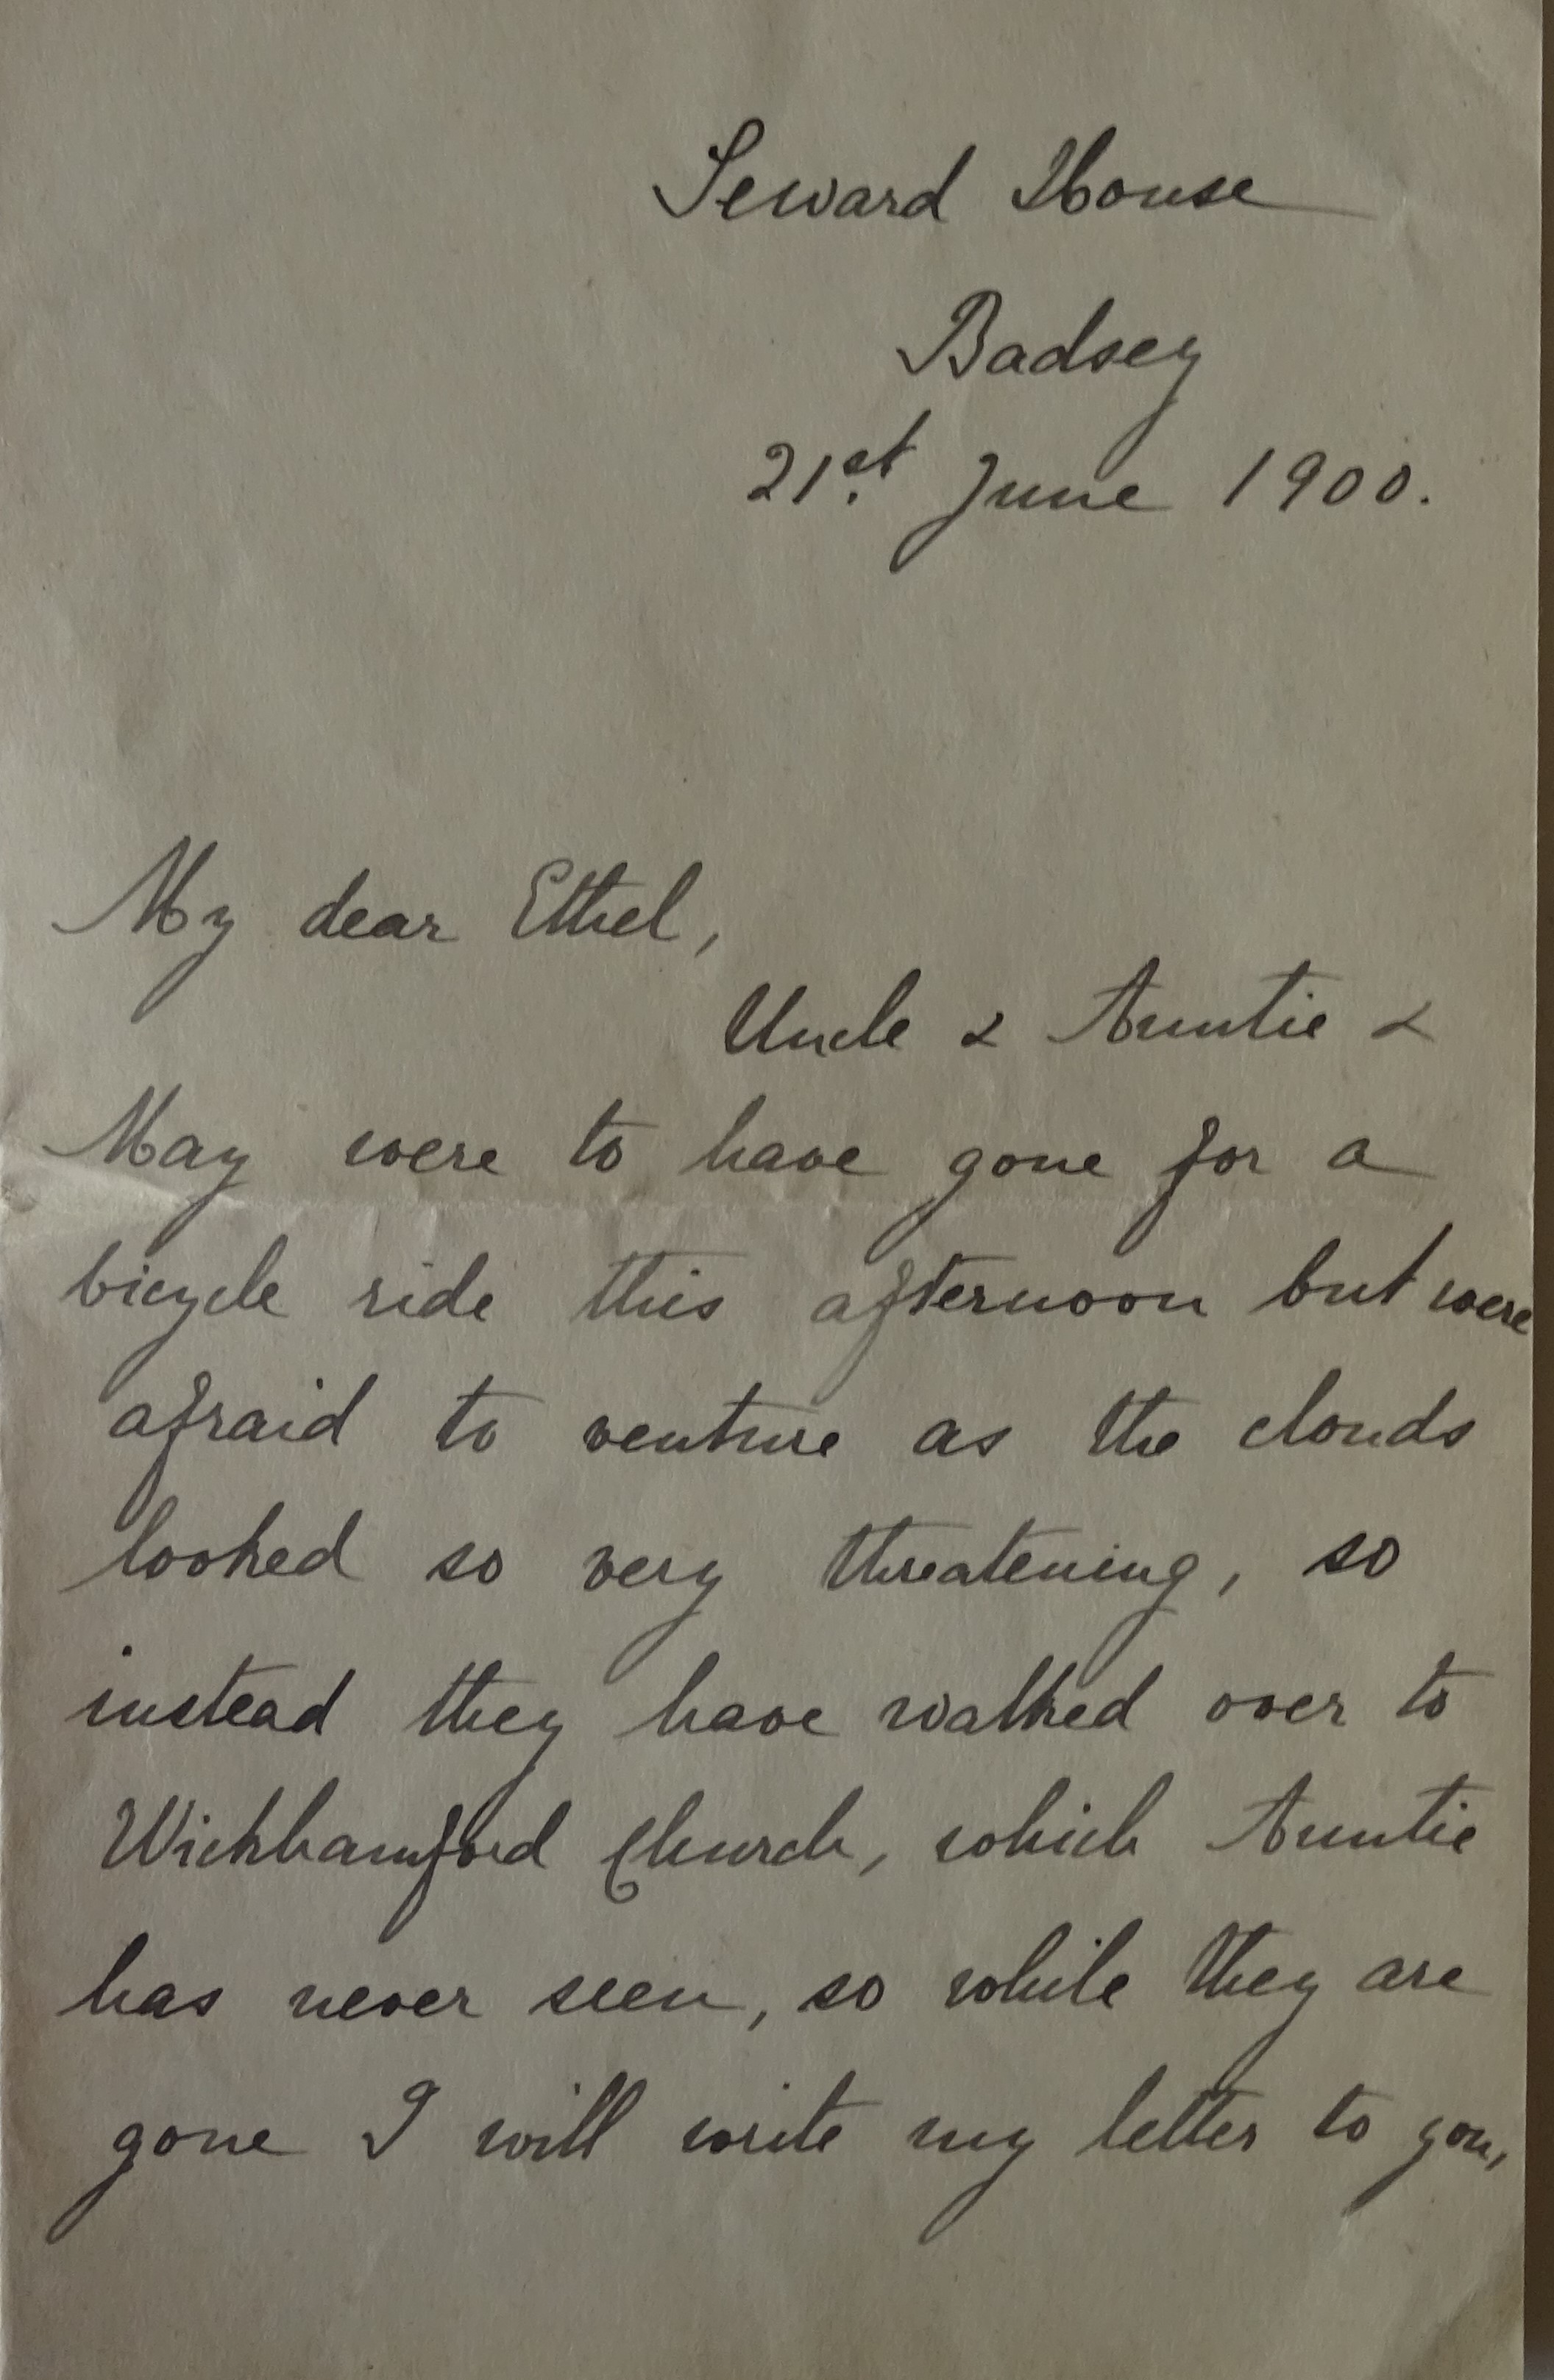 Seward House
Badsey
21st. June 1900.
My dear Ethel,
Uncle & Auntie &
May were to have gone for a
bicycle ride this afternoon but were
afraid to venture as the clouds
looked so very threatening, so
instead they have walked over to
Wickhamford Church, which Auntie
has never seen, so while they are
gone I will write my letter to you,